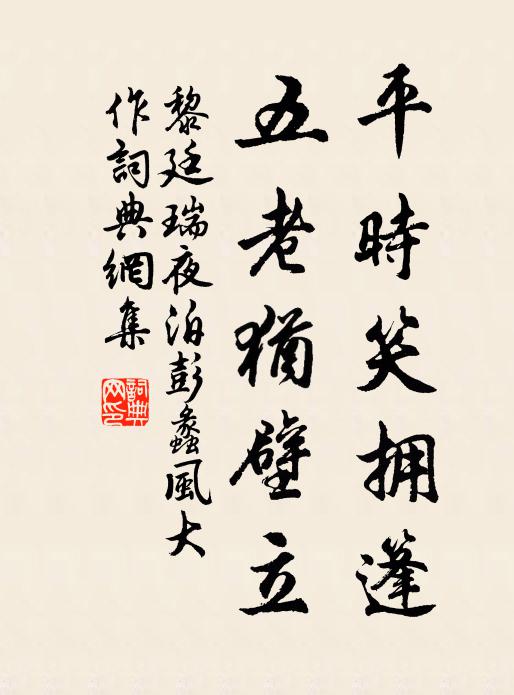 平時笑拥篷
五老猶壁立
黎廷瑞夜泊彭蠡風大
作詞典網集
詞典
网印